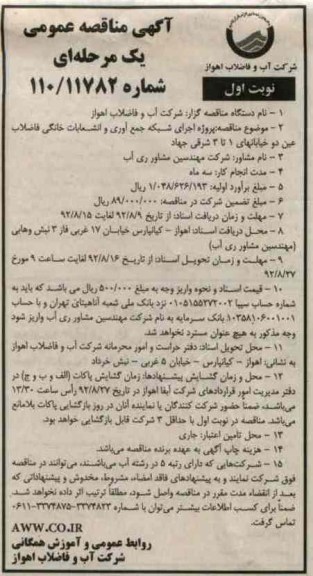 شرکت آب و فاضلاب اهواز
آگهی مناقصه عمومی
یک مرحله‌ای
شماره ۱۱۰/۱۱۷۸۲
نوبت اول
۱ - نام دستگاه مناقصه گزار: شرکت آب و فاضلاب اهواز
۲ - موضوع مناقصه:پروژه اجرای شبکه جمع آوری و انشعابات خانگی فاضلاب
عین دو خیابانهای ۱ تا ۳ شرقی جهاد
۳ - نام مشاور: شرکت مهندسین مشاور ری آب
۴ - مدت انجام کار: سه ماه
۵ - مبلغ برآورد اولیه: ۱/۰۴۸/۶۳۶/۱۹۳ ریال
۶ - مبلغ تضمین شرکت در مناقصه: ۸۹/۰۰۰/۰۰۰ ریال
۷ - مهلت و زمان دریافت اسناد: از تاریخ ۹۲/۸/۹ لغایت ۹۲/۸/۱۵
۸ - محل دریافت اسناد: اهواز - کیانپارس خیابان ۱۷ غربی فاز ۳ نبش وهابی
(مهندسین مشاور ری آب)
۹ - مهلت و زمان تحویل اسناد: از تاریخ ۹۲/۸/۱۶ لغایت ساعت ۹ مورخ
۹۲/۸/۲۷
۱۰ - قیمت اسناد و نحوه واریز وجه به مبلغ ۵۰۰/۰۰۰ ریال می باشد که باید به
شماره حساب سیبا ۰۱۰۵۱۵۵۲۷۲۰۰۲ نزد بانک ملی شعبه آناهیتای تهران و یا حساب
۱۰۳۵۸۱۰۶۰۰۱۰۰۱ بانک سرمایه به نام شرکت مهندسین مشاور ری آب واریز شود
وجه مذکور به هیچ عنوان مسترد نخواهد شد.
۱۱ - محل تحویل اسناد: دفتر حراست و امور محرمانه شرکت آب و فاضلاب اهواز
به نشانی: اهواز - کیانپارس - خیابان ۵ غربی - نبش خرداد
۱۲ - محل و زمان گشایش پیشنهادها: زمان گشایش پاکات (الف و ب و ج) در
دفتر مدیریت امور قراردادهای شرکت آبفا اهواز در تاریخ ۹۲/۸/۲۷ رأس ساعت ۱۳/۳۰
می‌باشد، ضمناً حضور شرکت کنندگان یا نماینده آنان در روز بازگشایی پاکات بلامانع
می‌باشد. مناقصه در نوبت اول با حداقل ۳ شرکت قابل بازگشایی خواهد بود.
۱۳ - محل تامین اعتبار: جاری
۱۴ - هزینه چاپ آگهی به عهده برنده مناقصه می‌باشد.
۱۵ - شرکت‌هایی که دارای رتبه ۵ در رشته آب می‌باشند، می‌توانند در مناقصه
فوق شرکت نمایند و به پیشنهادهای فاقد امضاء، مشروط، مخدوش و پیشنهاداتی که
بعد از انقضاء مدت مقرر در مناقصه واصل شود، مطلقاً ترتیب اثر داده نخواهد شد.
ضمناً برای کسب اطلاعات بیشتر می‌توان با شماره ۳۳۷۴۸۲۳-۳۳۷۴۸۷۵-۰۶۱۱
تماس گرفت.
AWW.CO.IR
روابط عمومی و آموزش همگانی
شرکت آب و فاضلاب اهواز